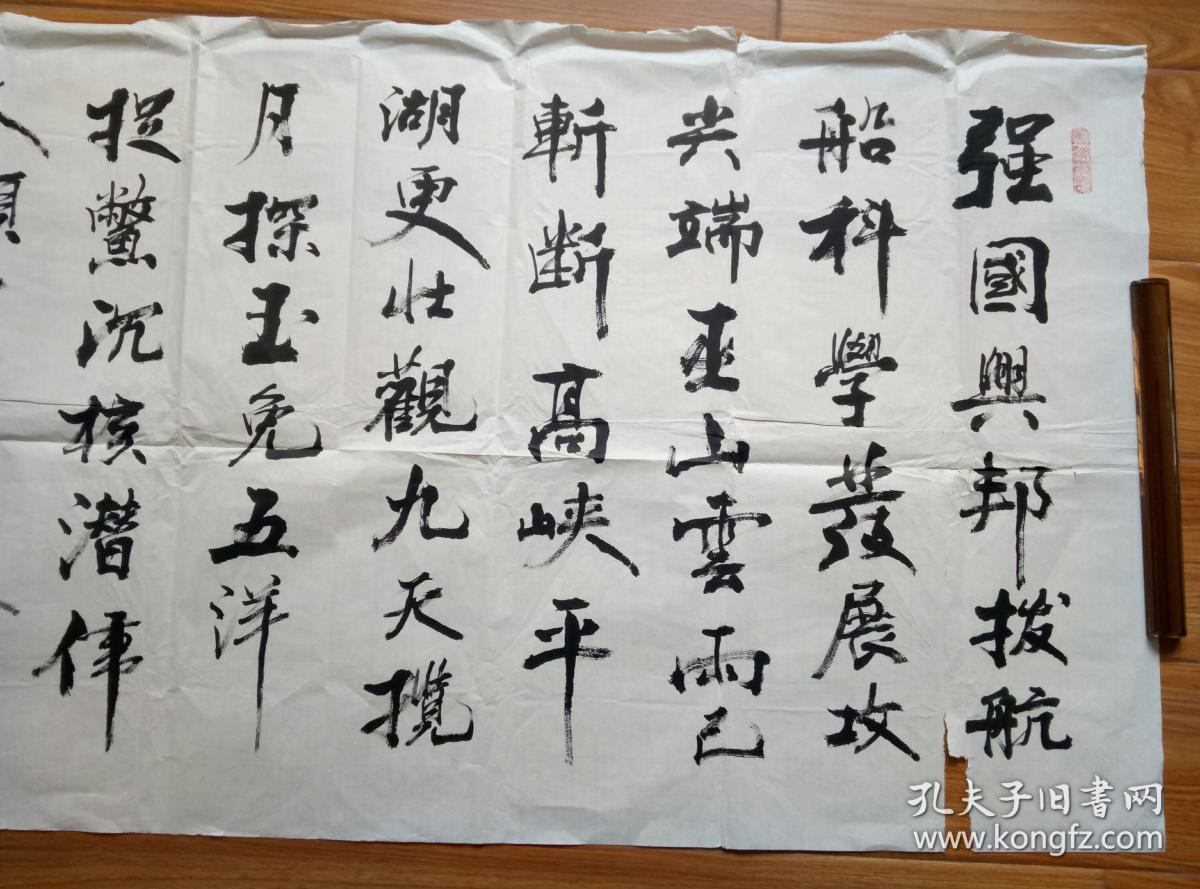 强國興邦拨航
船科學發展攻
尖端巫山雲雨已
斬断高峡平
湖更壮觀九天揽
月探玉兔五洋
捉鱉沉核潜伟
孔夫子旧書网
www.kongfz.com